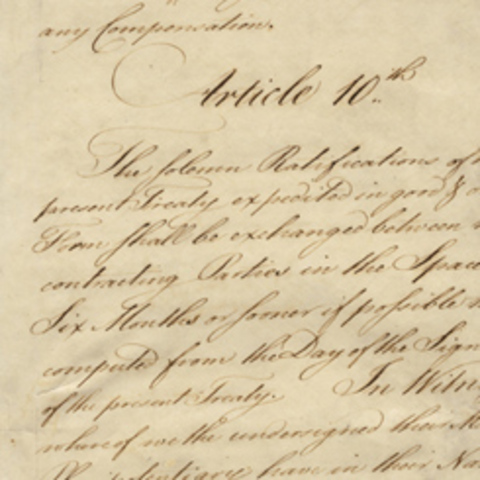 any Compensation.
Article 10.th
The solemn Ratifications of
present Treaty expedited in good &
Form shall be exchanged between
contracting Parties in the Space
Six Months or sooner if possible
computed from the Day of the Sign
of the present Treaty. In Witn
whereof we the undersigned their M
have in their Na